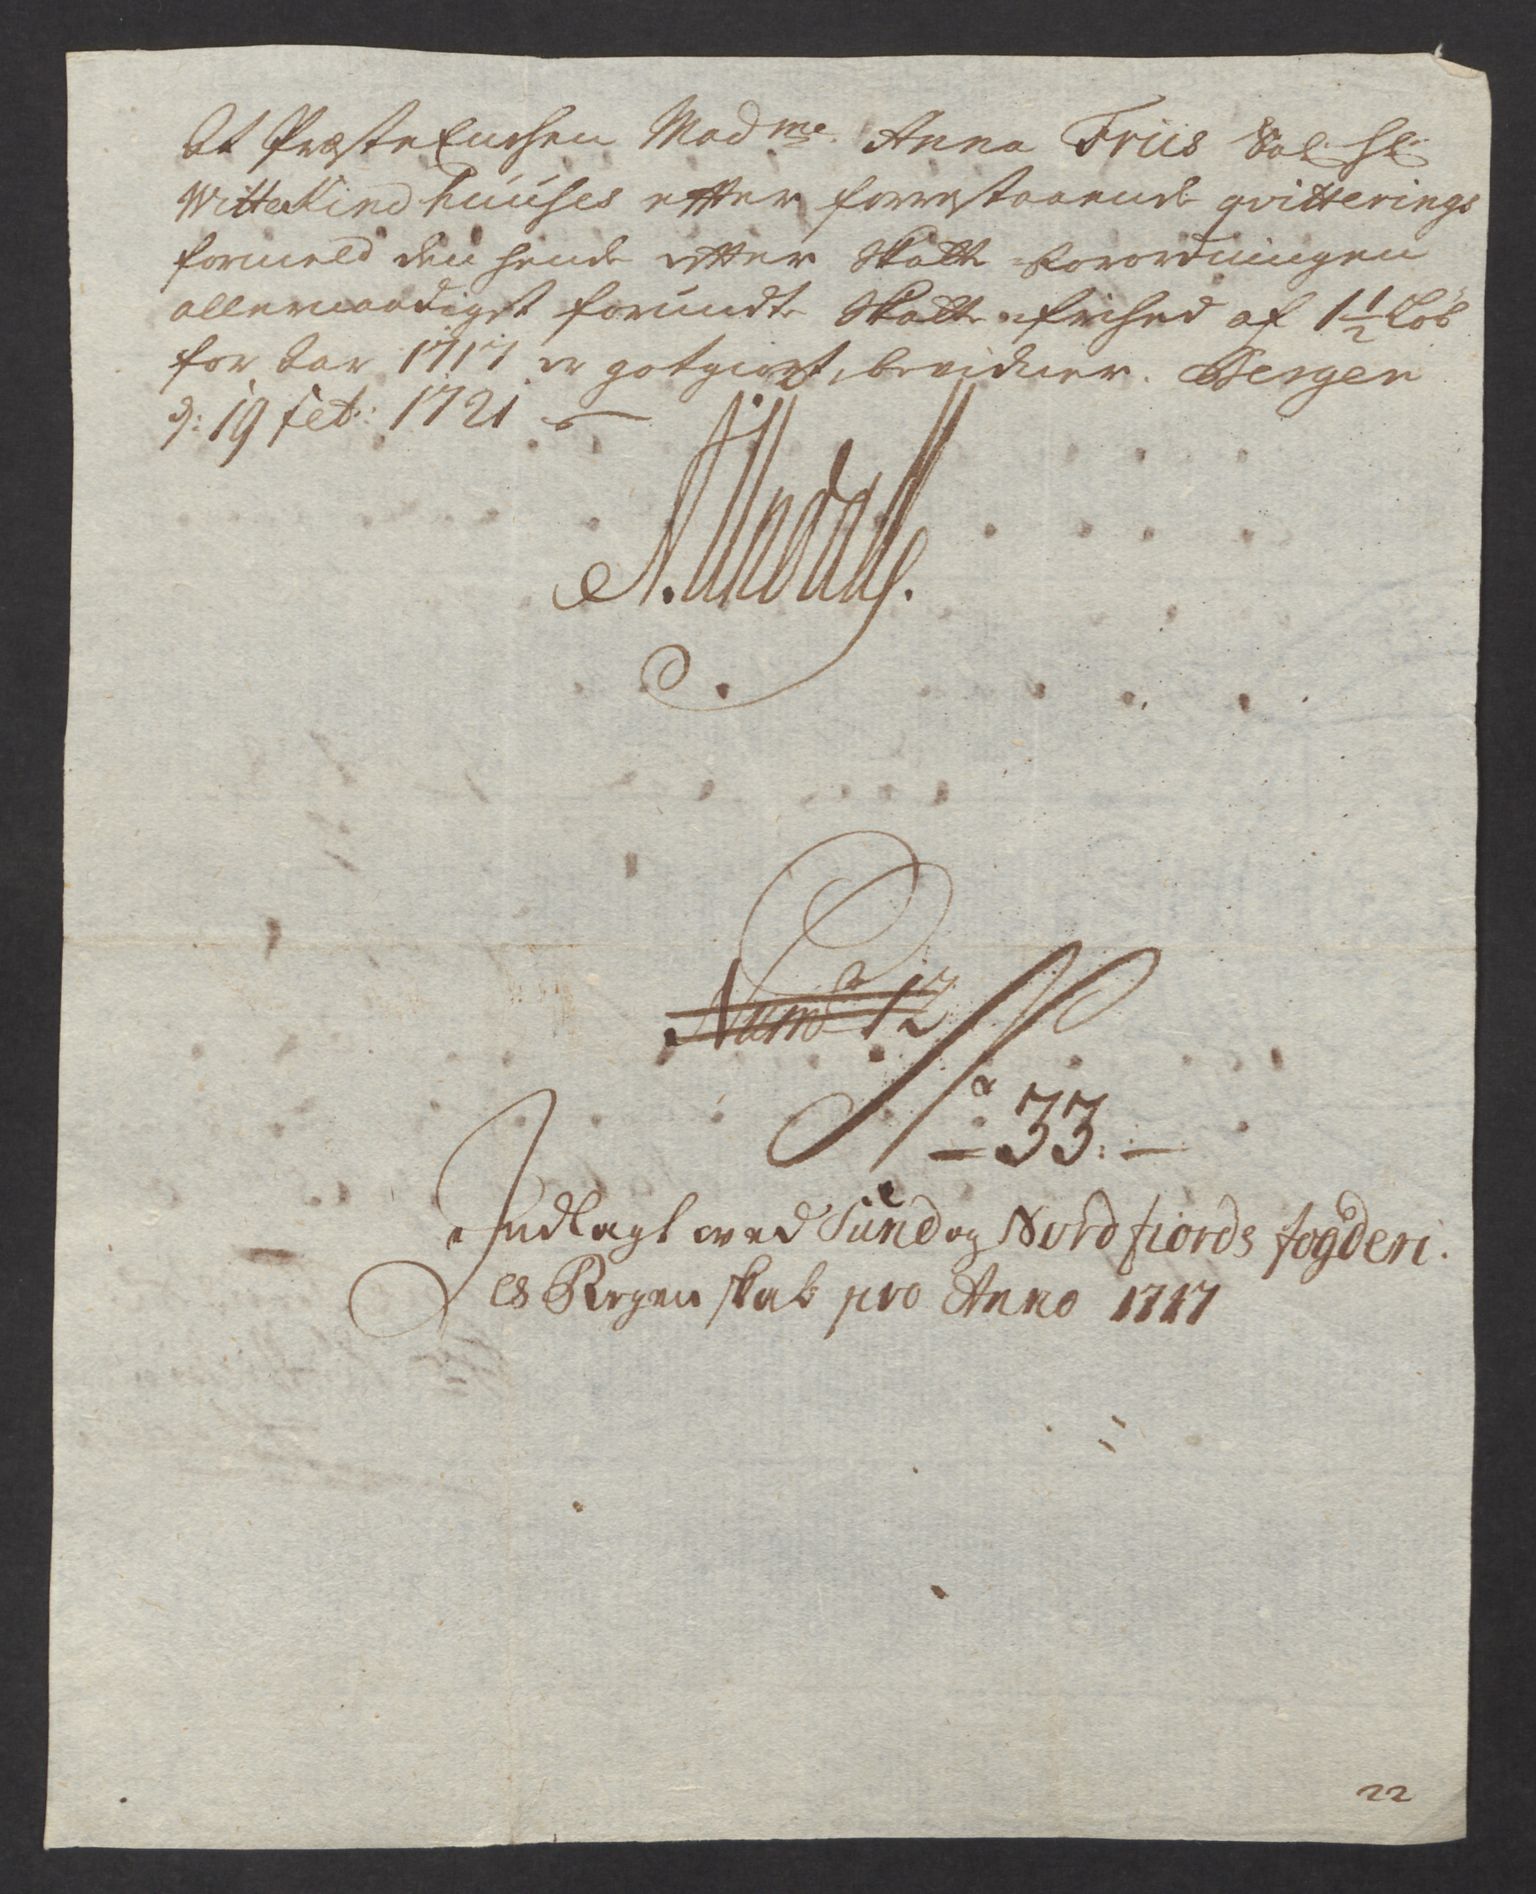 At Præste Enchen Mad.me Anna Friis Sal. Hr
Wittekind Huuses efter forrestaaende qvitterings
formeld den hende efter Skatte-forordningen
allernaadigst forundte Skatte-frihed af 1 1/2 Løb
for Aar 1717 er godgiort, bevidner. Bergen
d: 19 feb: 1721
Num° 12
N° 33:
Indlagt ved Sund og Nordfiords fogderi
es Regenskab pro Anno 1717
22